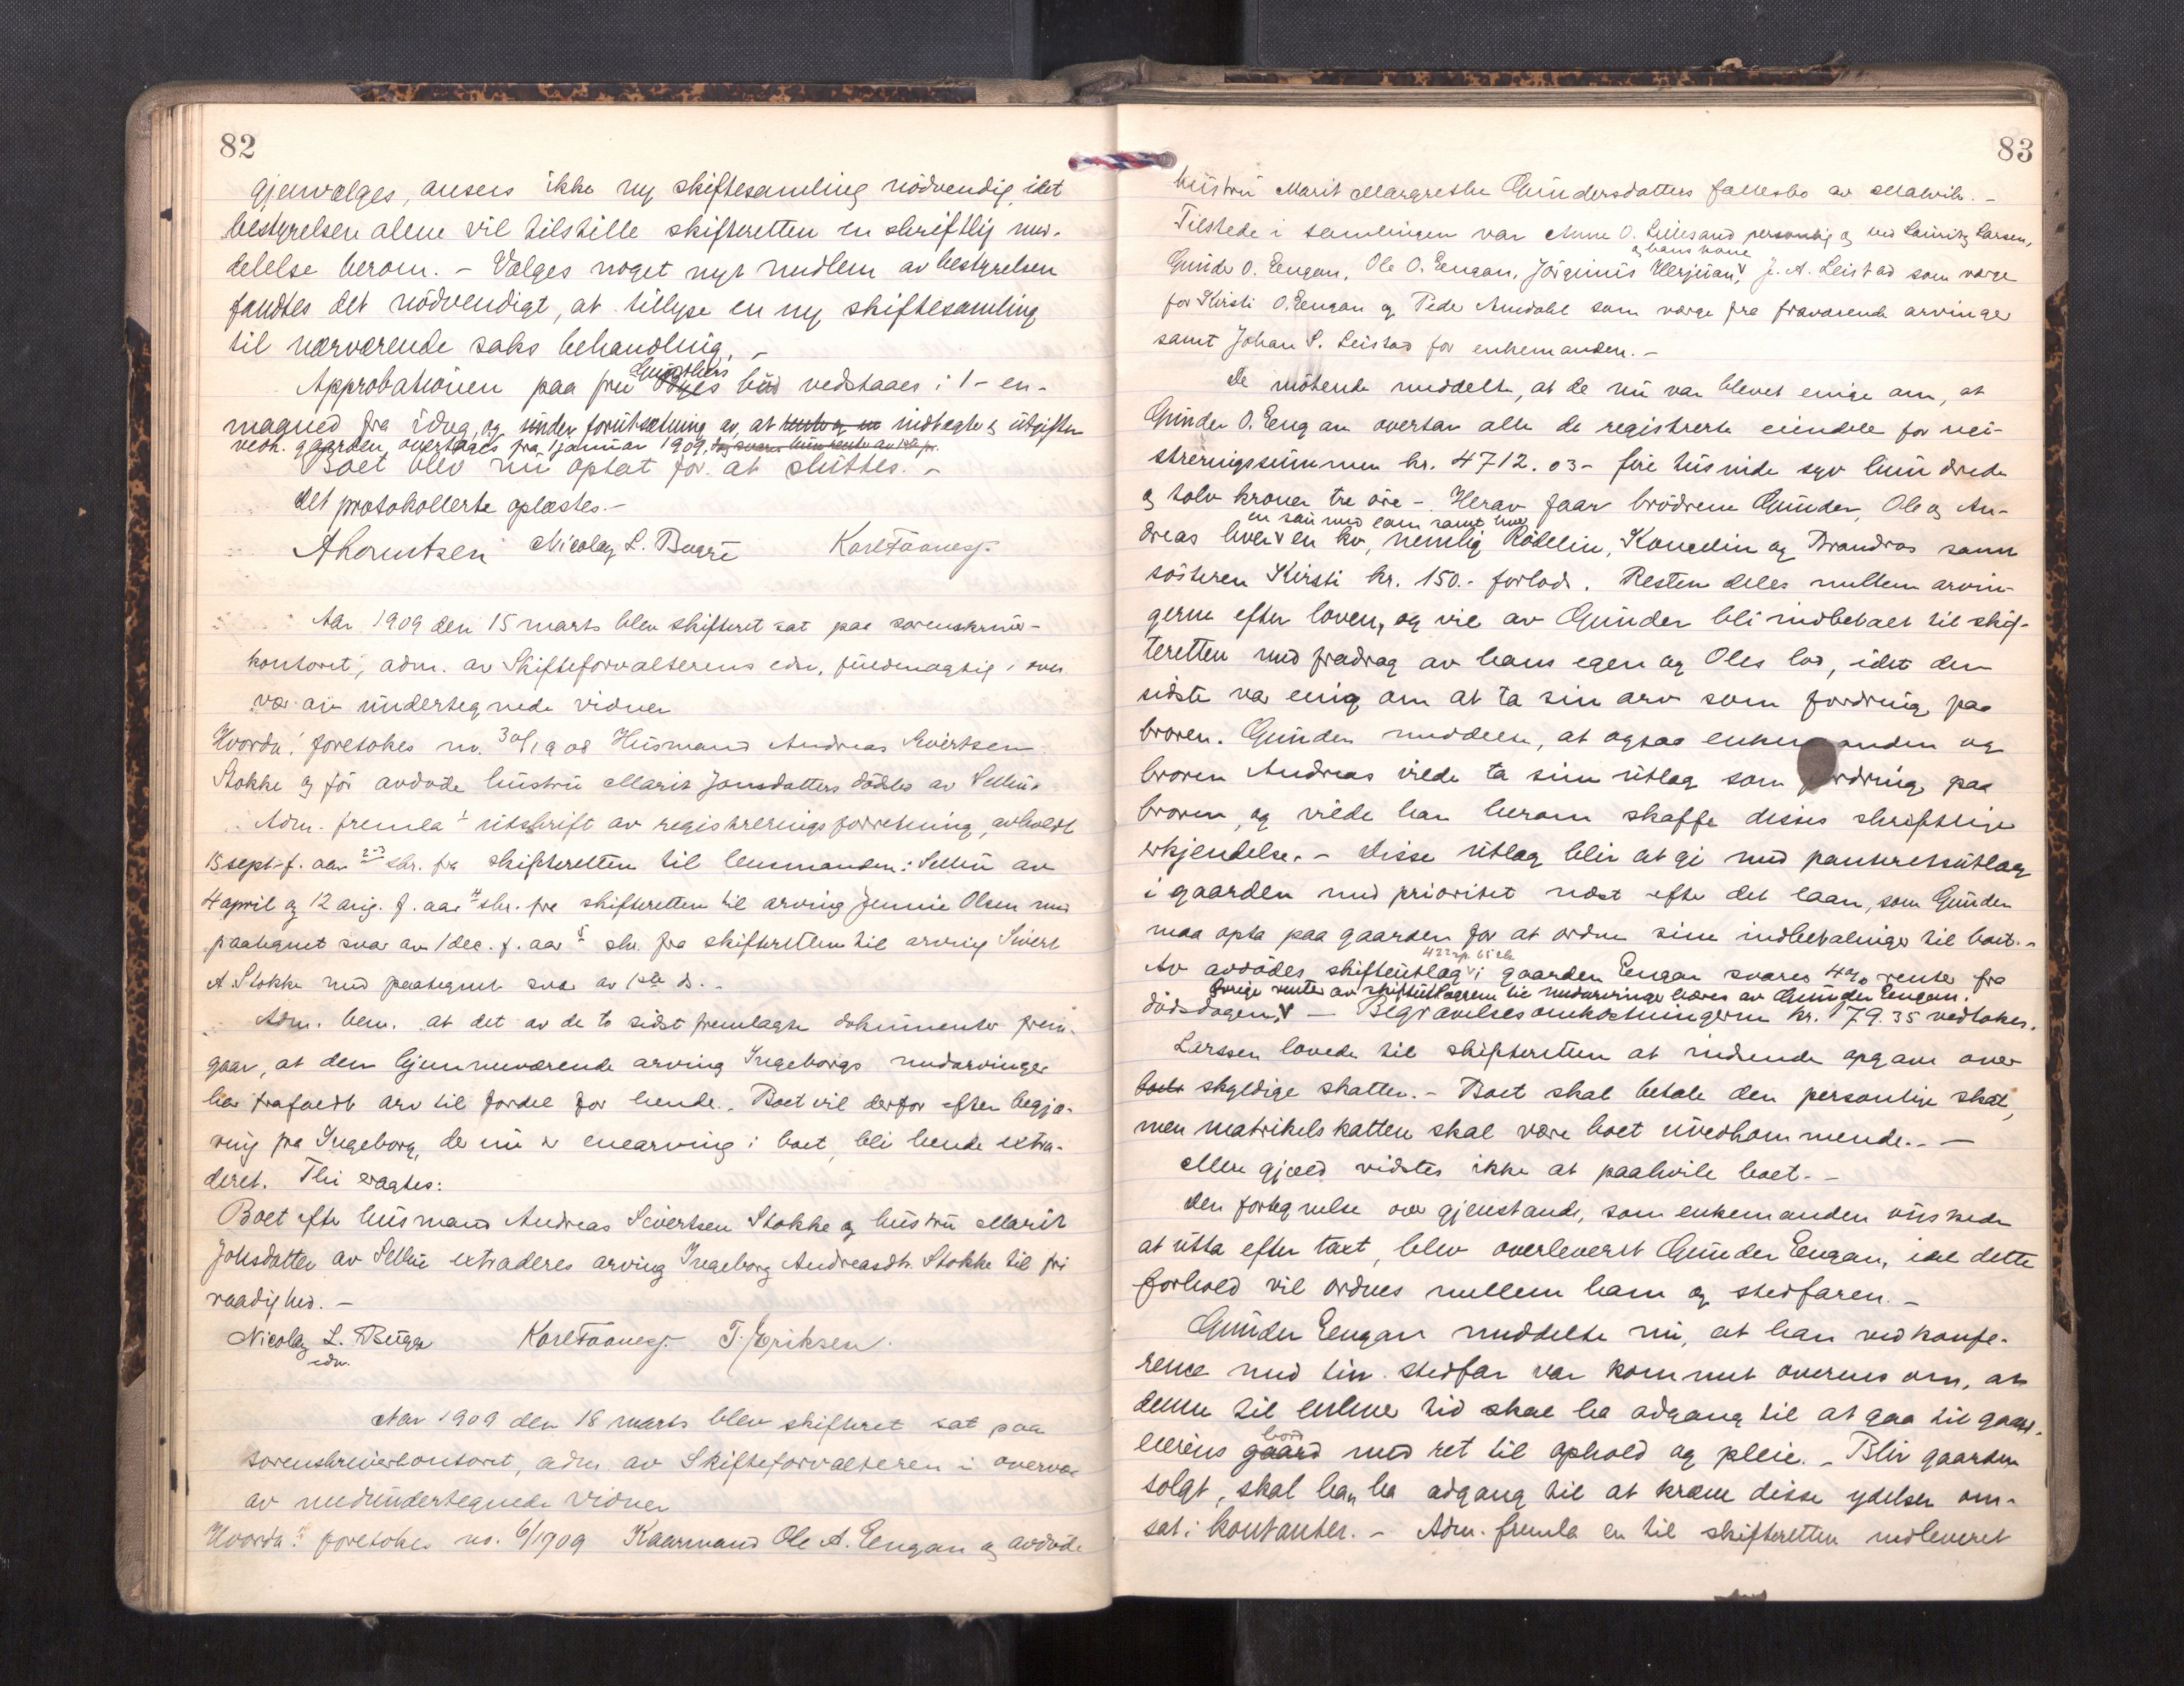 82
gjenvælges, ansees ikke ny skiftesamling nödvendig, idet
bestyrelsen alene vil tilstille skifteretten en skriftlig med-
delelse herom. - Vælges noget nyt medlem av bestyrelsen
fandtes det nödvendigt, at tillyse en ny skiftesamling
til nærværende saks behandling. -
Approbationen paa fru bud vedstaaes i 1 - en -
maaned fra idag, og under forutsætning av, at indtægter & utgifter
vedk. gaarden overtages fra januar 1909.
Boet blev nu optat for at sluttes. -
Det protokollerte oplæstes. -
Nicolay L. Bugge Karl Faanesj.
Aar 1909 den 15 marts blev skifteret sat paa sorenskriver-
kontoret, adm. av Skifteforvalterens edsv. fuldmægtig i over
vær av undertegnede vidner
Hvorda! foretokes no. 30/1908 Husmand Andreas Sivertsen
Stokke og för avdøde hustru Marit Jonsdatters dødsbo av Selbu.
Adm. fremla 1 utskrift av registreringsforretning, avholdt
15 sept. f. aar 2-3 skr. fra skifteretten til lensmanden i Selbu av
4 april og 12 aug. f. aar 4 skr. fra skifteretten til arving Jennie Olsen med
paategnet svar av 1 dec. f. aar 5 skr. fra skifteretten til arving Sivert
A. Stokke med paategnet svar av 1ste ds. -
Adm. bem. at det av de to sidst fremlagte dokumenter frem-
gaar, at den hjemmeværende arving Ingeborgs medarvinger
har frafaldt arv til fordel for hende. Boet vil derfor efter begjæ-
ring fra Ingeborg, der nu er enearving i boet, bli hende extra-
deret. Thi eragtes:
Boet efter husmand Andreas Sivertsen Stokke og hustru Marit
Johsdatter av Selbu extraderes arving Ingeborg Andreasdtr. Stokke til fri
raadighed. -
Nicolay L. Bugge Karl Faanesj. T. Eriksen.
edsv.
Aar 1909 den 18 marts blev skifteret sat paa
sorenskriverkontoret, adm. av Skifteforvalteren i overvær
av medundertegnede vidner
Hvorda! foretokes no. 6/1909 Kaarmand Ole A. Eengan og avdøde
83
hustru Marit Margrethe Gundersdatters fællesbo av Malvik. -
Tilstede i samlingen var Anne O. Lillesand personlig og ved Lauritz Larsen,
og hans kone
Gunder O. Eengan, Ole O. Eengan, Jørginus J. A. Leistad som værge
for Kirsti O. Eengan og Peder Amdahl som værge fra fraværende arvinger
samt Johan P. Leistad for enkemanden. -
De mötende meddelte, at de nu var blevet enige om, at
Gunder O. Eengan overtar alle de registrerte eiendele for
streringssummen kr. 4712.03 - fire tusinde syv hundrede
og tolv kroner tre öre -. Herav faar brödrene Gunder, Ole og An-
en sau med lam samt hver
dreas hver en ko, nemlig Rödelin, Konelin og Brandros samt
sösteren Kirsti kr. 150.- forlods. Resten deles mellem arvin-
gerne efter loven, og vil av Gunder bli indbetalt til skif-
teretten med fradrag av hans egen og Oles lod, idet den
sidste var enig om at ta sin arv som fordring paa
broren. Gunder meddelte, at ogsaa enkemanden og
broren Andreas vilde ta sine utlæg som fordring paa
broren, og vilde han herom skaffe disses skriftlige
erkjendelse. - Disse utlæg blir at gi med panteretsutlæg
i gaarden med prioritet næst efter det laan, som Gunder
maa opta paa gaarden for at ordne sine indbetalinger til boet. -
Av avdødes skifteutlæg i gaarden Eengan svares 4% renter fra
Övrige renter av skifteutlæggene til medarvinger bæres av Gunder Eengan.
dödsdagen. - Begravelsesomkostningerne kr. 179.35 vedtokes.
Larssen lovede til skifteretten at indsende opgave over
boets skyldige skatter. - Boet skal betale den personlige skat,
men matrikelskatten skal være boet uvedkommende. -
Mere gjæld vidstes ikke at paahvile boet. -
Den fortegnelse over gjenstande, som enkemanden önskede
at utta efter taxt, blev overleveret Gunder Eengan, idet dette
forhold vil ordnes mellem ham og stedfaren. -
Gunder Eengan meddelte nu, at han ved konfe-
rence med sin stedfar var kommet overens om, at
denne til enhver tid skal ha adgang til at gaa til gaard-
bord
eierens gaard med ret til ophold og pleie. - Blir gaarden
solgt, skal han ha adgang til at kræve disse ydelser om-
sat i kontanter. - Adm. fremla en til skifteretten indleveret